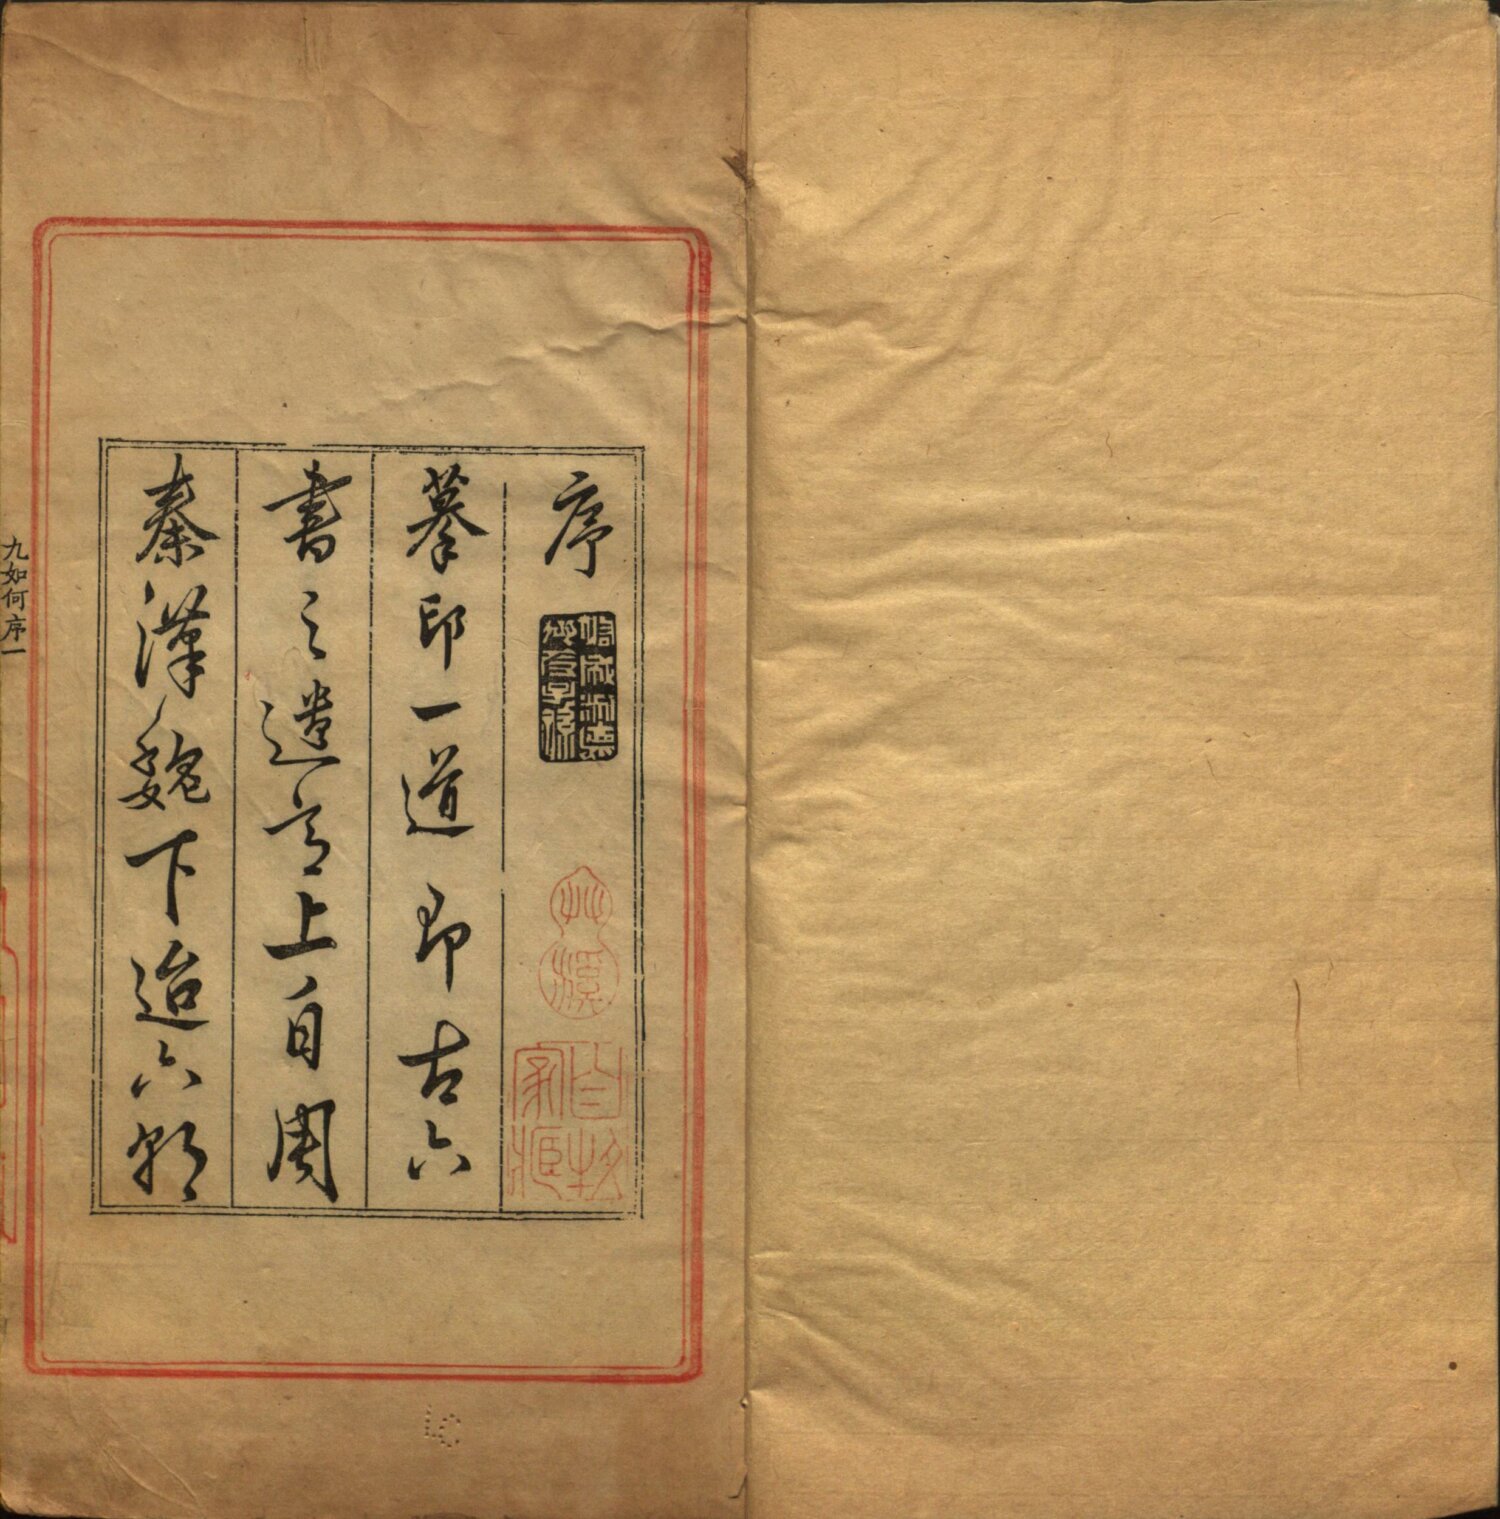 序
摹印一道即古六
書之遺上自周
秦漢魏下迨六朝
九如何序一
LC